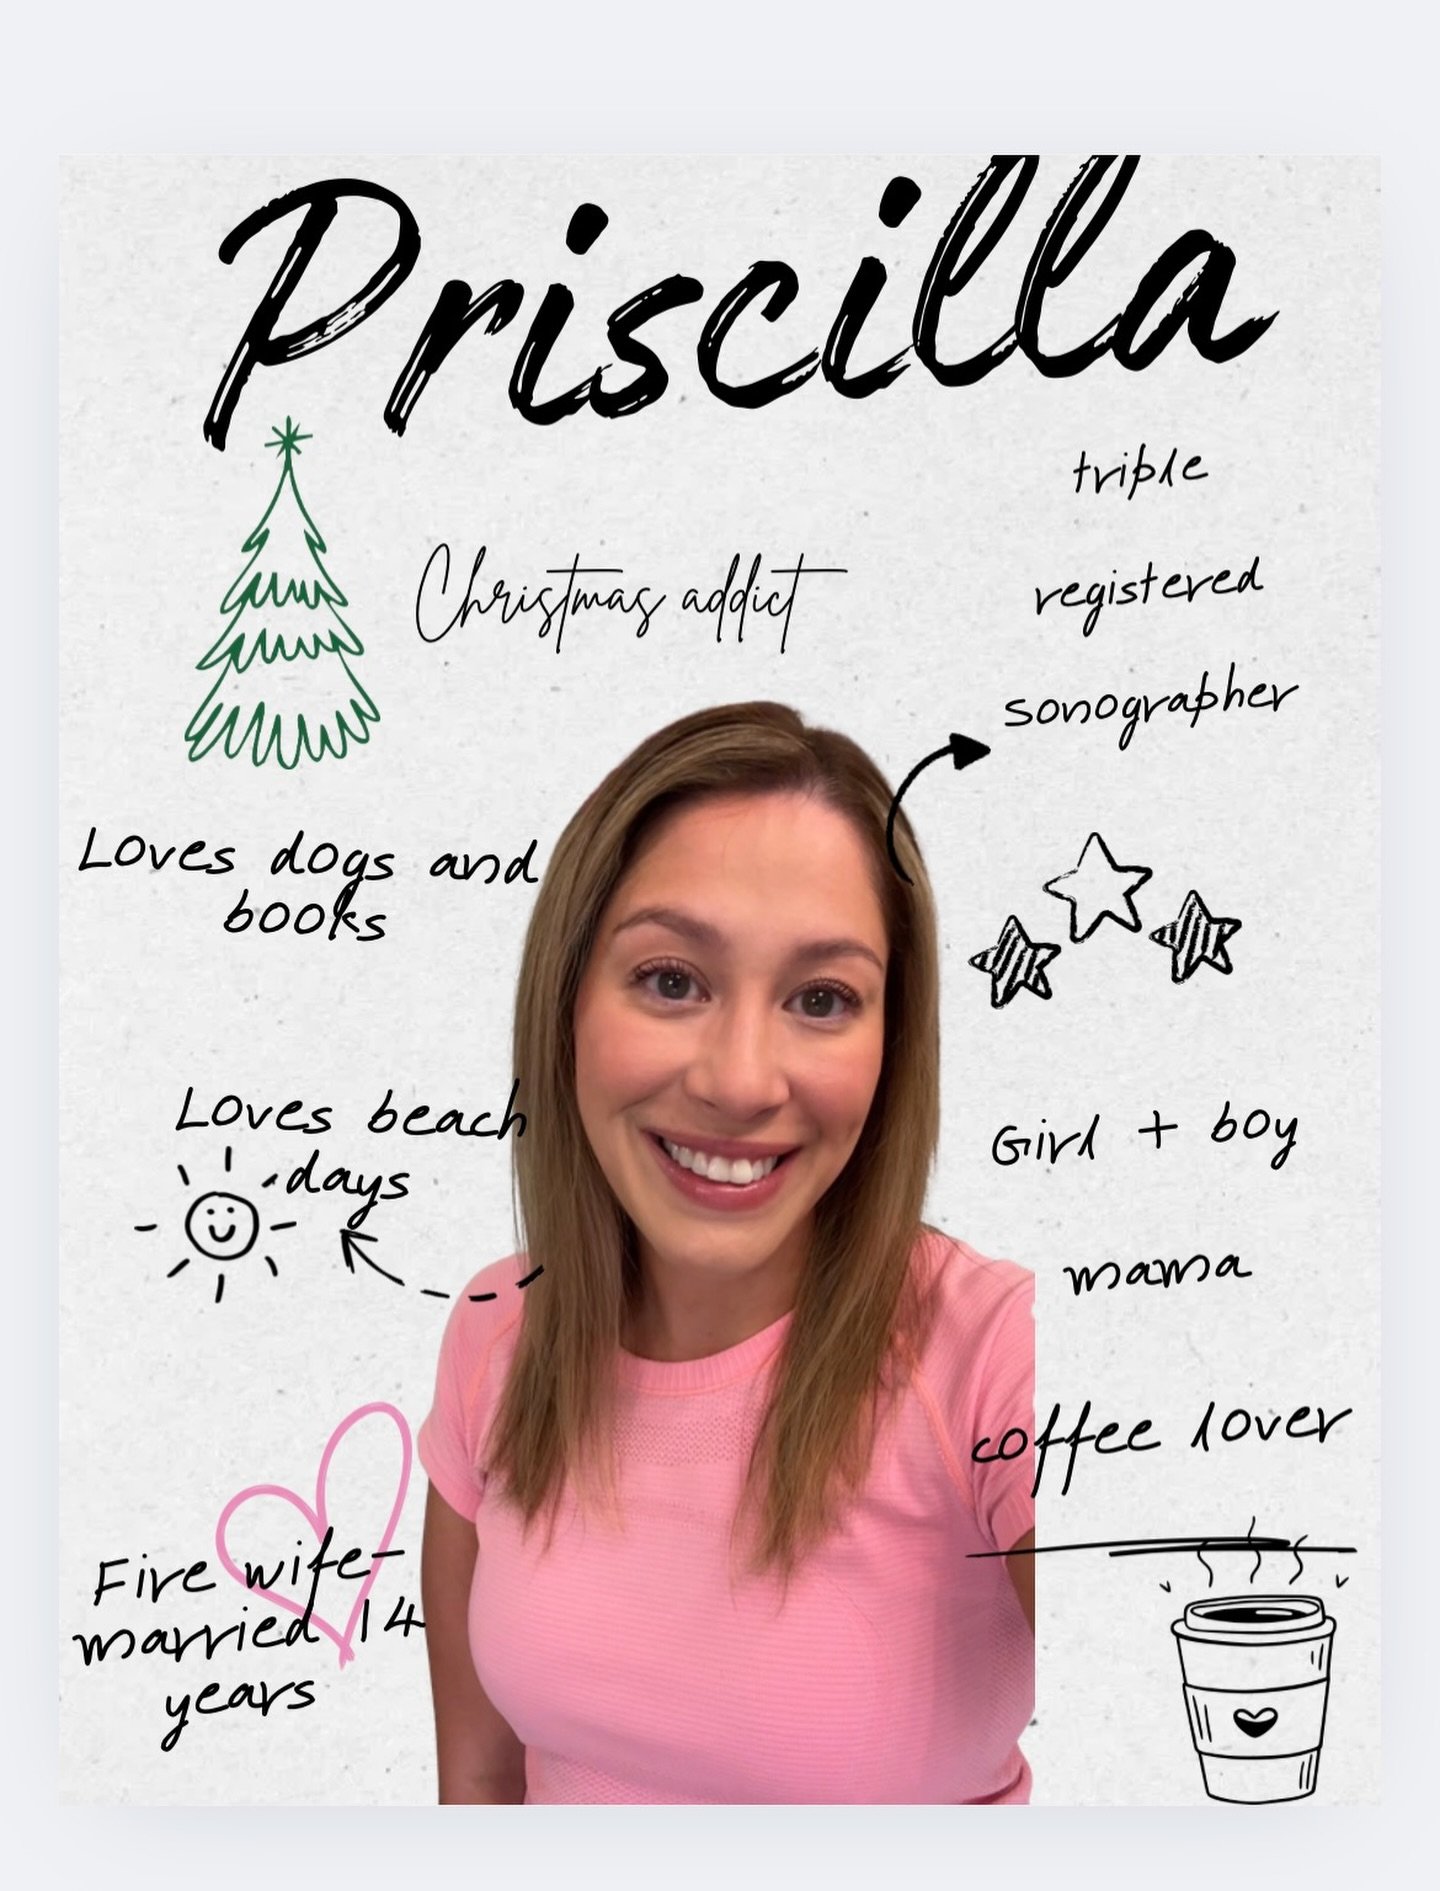 Priscilla
triple
registered
sonographer
Christmas addict
Loves dogs and
books
Loves beach
days
Girl + boy
mama
coffee lover
Fire wife-
married 14
years